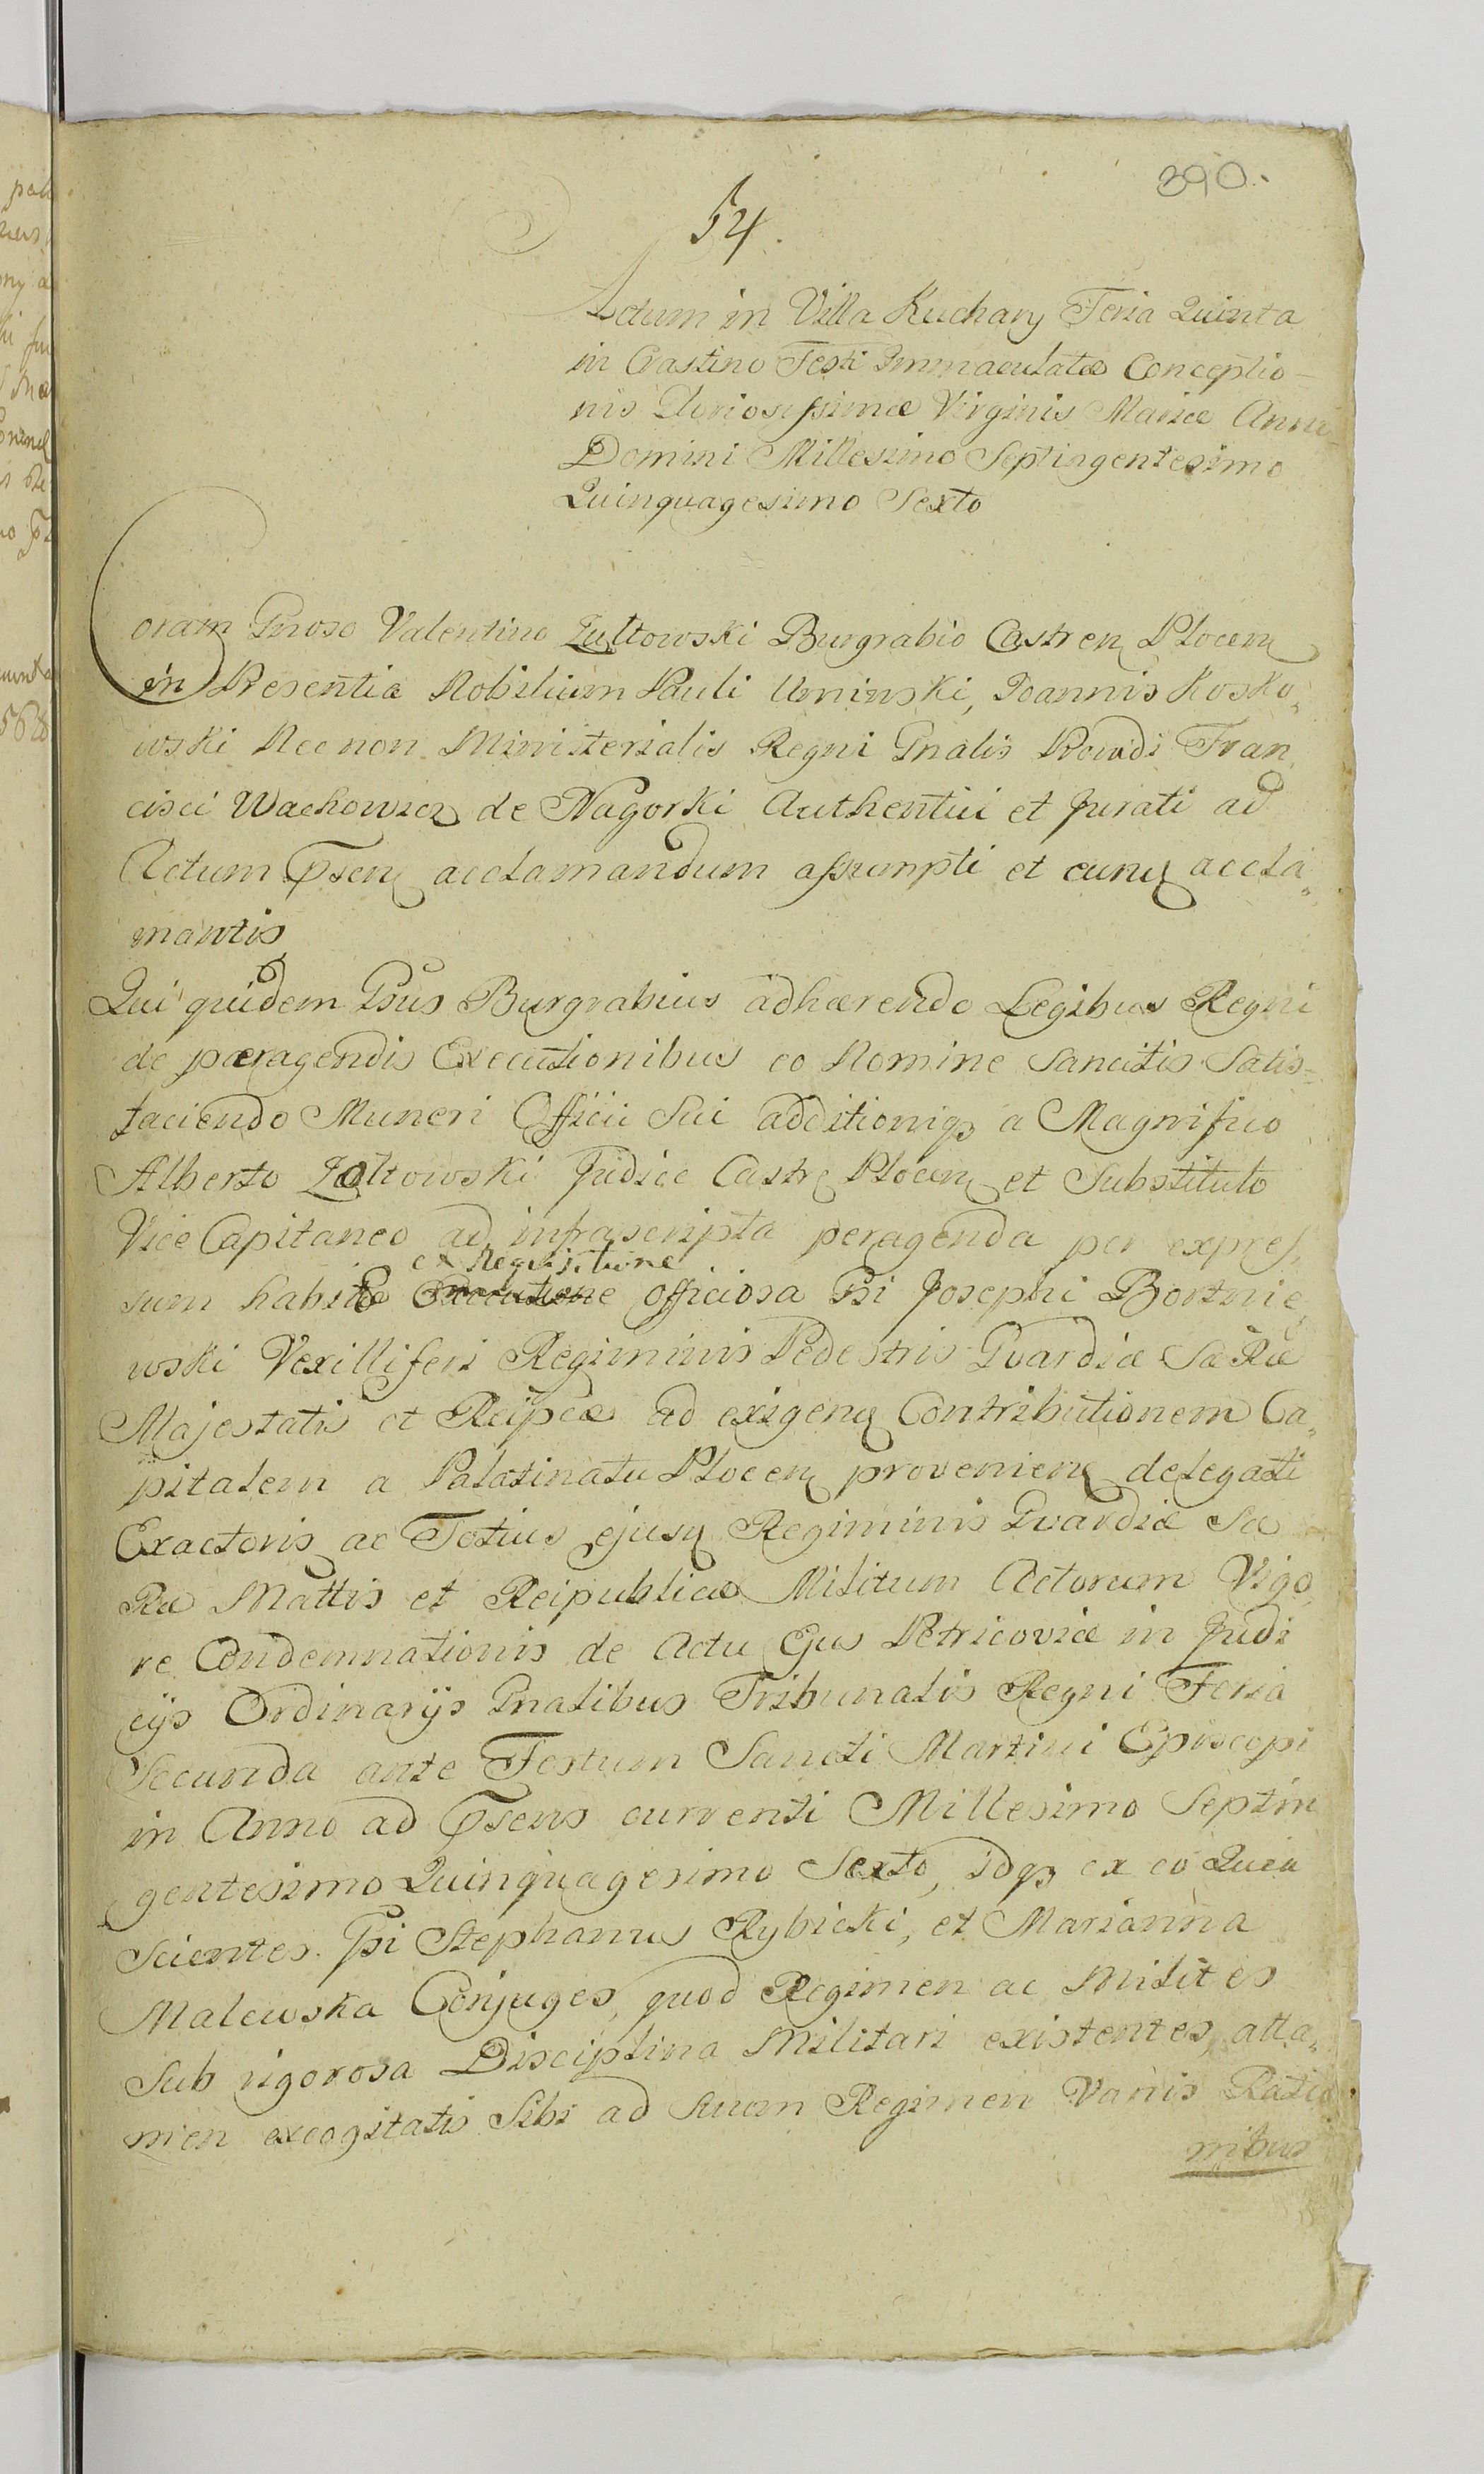 390.
54.
Actum in Villa Kuchary Feria Quinta
in Crastino Festi Immaculatæ Conceptio
nis Gloriosissimæ Virginis Mariæ Anno
Domini Millesimo Septingentesimo
Quinquagesimo Sexto
Coram Gnoso Valentino Zułtowski Burgrabio Castren Plocen
in Presentia Nobilium Pauli Uminski, Joannis Kosko„
wski Necnon Ministerialis Regni Gnalis Providi Fran„
cisci Wachowicz de Nagorki Authentici et Jurati ad
Actum Psen acclamandum assumpti et eunq accla„
mantis
Qui quidem Gsus Burgrabius adhærendo Legibus Regni
de peragendis Executionibus eo Nomine Sancitis Satis=
faciendo Muneri Officii Sui additioniq3 a Magnifico
Alberto Zołtowski Judice Castr Plocen et Substituto
Vice Capitaneo ad infrascripta peragenda per expres„
ex Requisitione
sum habitæ officiosa Gsi Josephi Bortnie„
wski Vexilliferi Regiminis Pedestris Gvardiæ Sæ Ræ
Majestatis et Reipcæ ad exigen Contributionem Ca„
pitalem a Palatinatu Plocen provenien delegati
Exactoris ac Totius ejusq Regiminis Gvardiæ Sæ
Ræ Mattis et Reipublicæ Militum Actorum Vigo„
re Condemnationis de Actu Ejus Petricoviæ in Judi
cijs Ordinarijs Gnalibus Tribunalis Regni Feria
Secunda ante Festum Sancti Martini Episcopi
in Anno ad Psens currenti Millesimo Septin
gentesimo Quinquagesimo Sexto, idq3 ex eo Quia
Scientes Gsi Stephanus Rybicki, et Marianna
Malewska Conjuges, quod Regimen ac Milites
Sub rigorosa Disciplina Militari existentes, atta„
men excogitatis Sibi ad Suum Regimen Variis Ratio
nibus